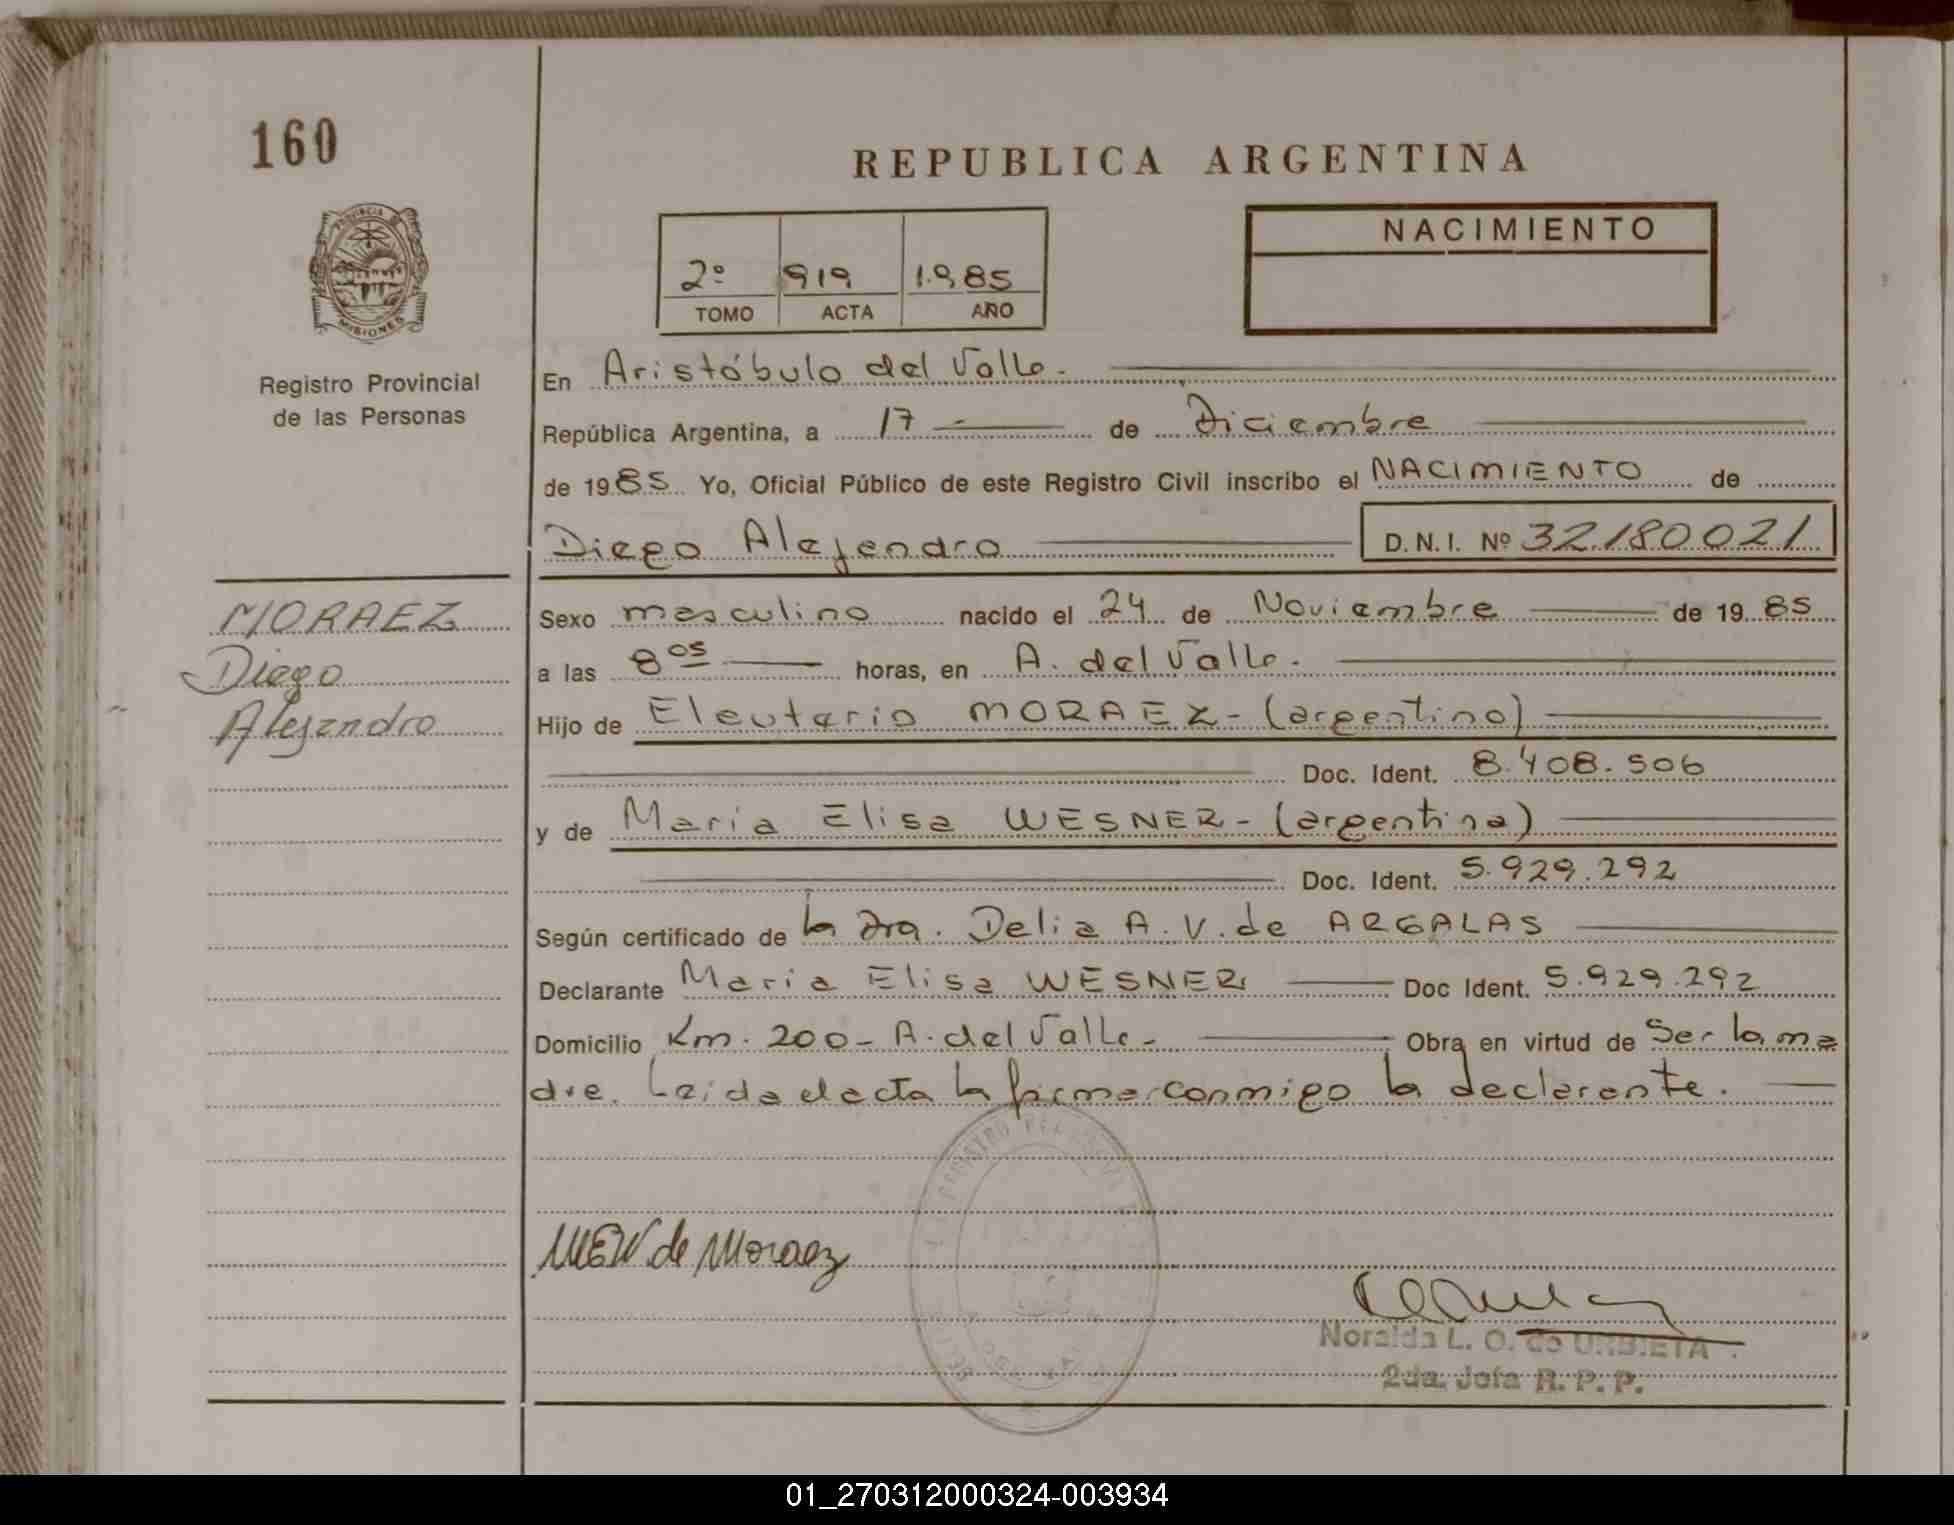 160
REPUBLICA ARGENTINA
PROVINCIA DE
MISIONES
Registro Provincial
de las Personas
2º 919 1.985
TOMO ACTA AÑO
NACIMIENTO
En Aristóbulo del Valle.
República Argentina, a 17 de Diciembre
de 1985 Yo, Oficial Público de este Registro Civil inscribo el NACIMIENTO de
Diego Alejandro D.N.I. Nº 32.180.021
MORAEZ
Diego
Alejandro
Sexo masculino nacido el 24 de Noviembre de 1985
a las 8 05 horas, en A. del Valle.
Hijo de Eleuterio MORAEZ - (argentino)
Doc. Ident. 8.408.506
y de Maria Elisa WESNER - (argentina)
Doc. Ident. 5.929.292
Según certificado de la Dra. Delia A. V. de ARGALAS
Declarante Maria Elisa WESNER Doc Ident. 5.929.292
Domicilio Km. 200 - A. del Valle - Obra en virtud de Ser la ma
dre. Leida el acta la firma conmigo la declarante.
MEW de Moraez
Noralda L. O. de URBIETA
2da. Jefa R. P. P.
01_270312000324-003934